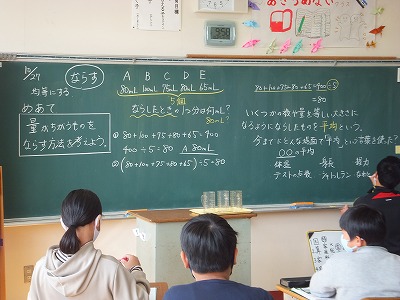 10/27
ならす
均等にする
めあて
量がちがうものを
ならす方法を考えよう。
A B C D E
80mL 100mL 75mL 80mL 65mL
5個
ならしたときの1つ分は何mL?
80mL?
① 80+100+75+80+65=400
400÷5=80 A 80mL
② (80+100+75+80+65)÷5=80
80+100+75+80+65=400÷5
=80
いくつかの数や量を等しい大きさに
なるようにならしたものを平均という。
今までにどんな場面で「平均」という言葉を使った?
〇〇の平均
体重 身長 握力
テストの点数 シャトルラン